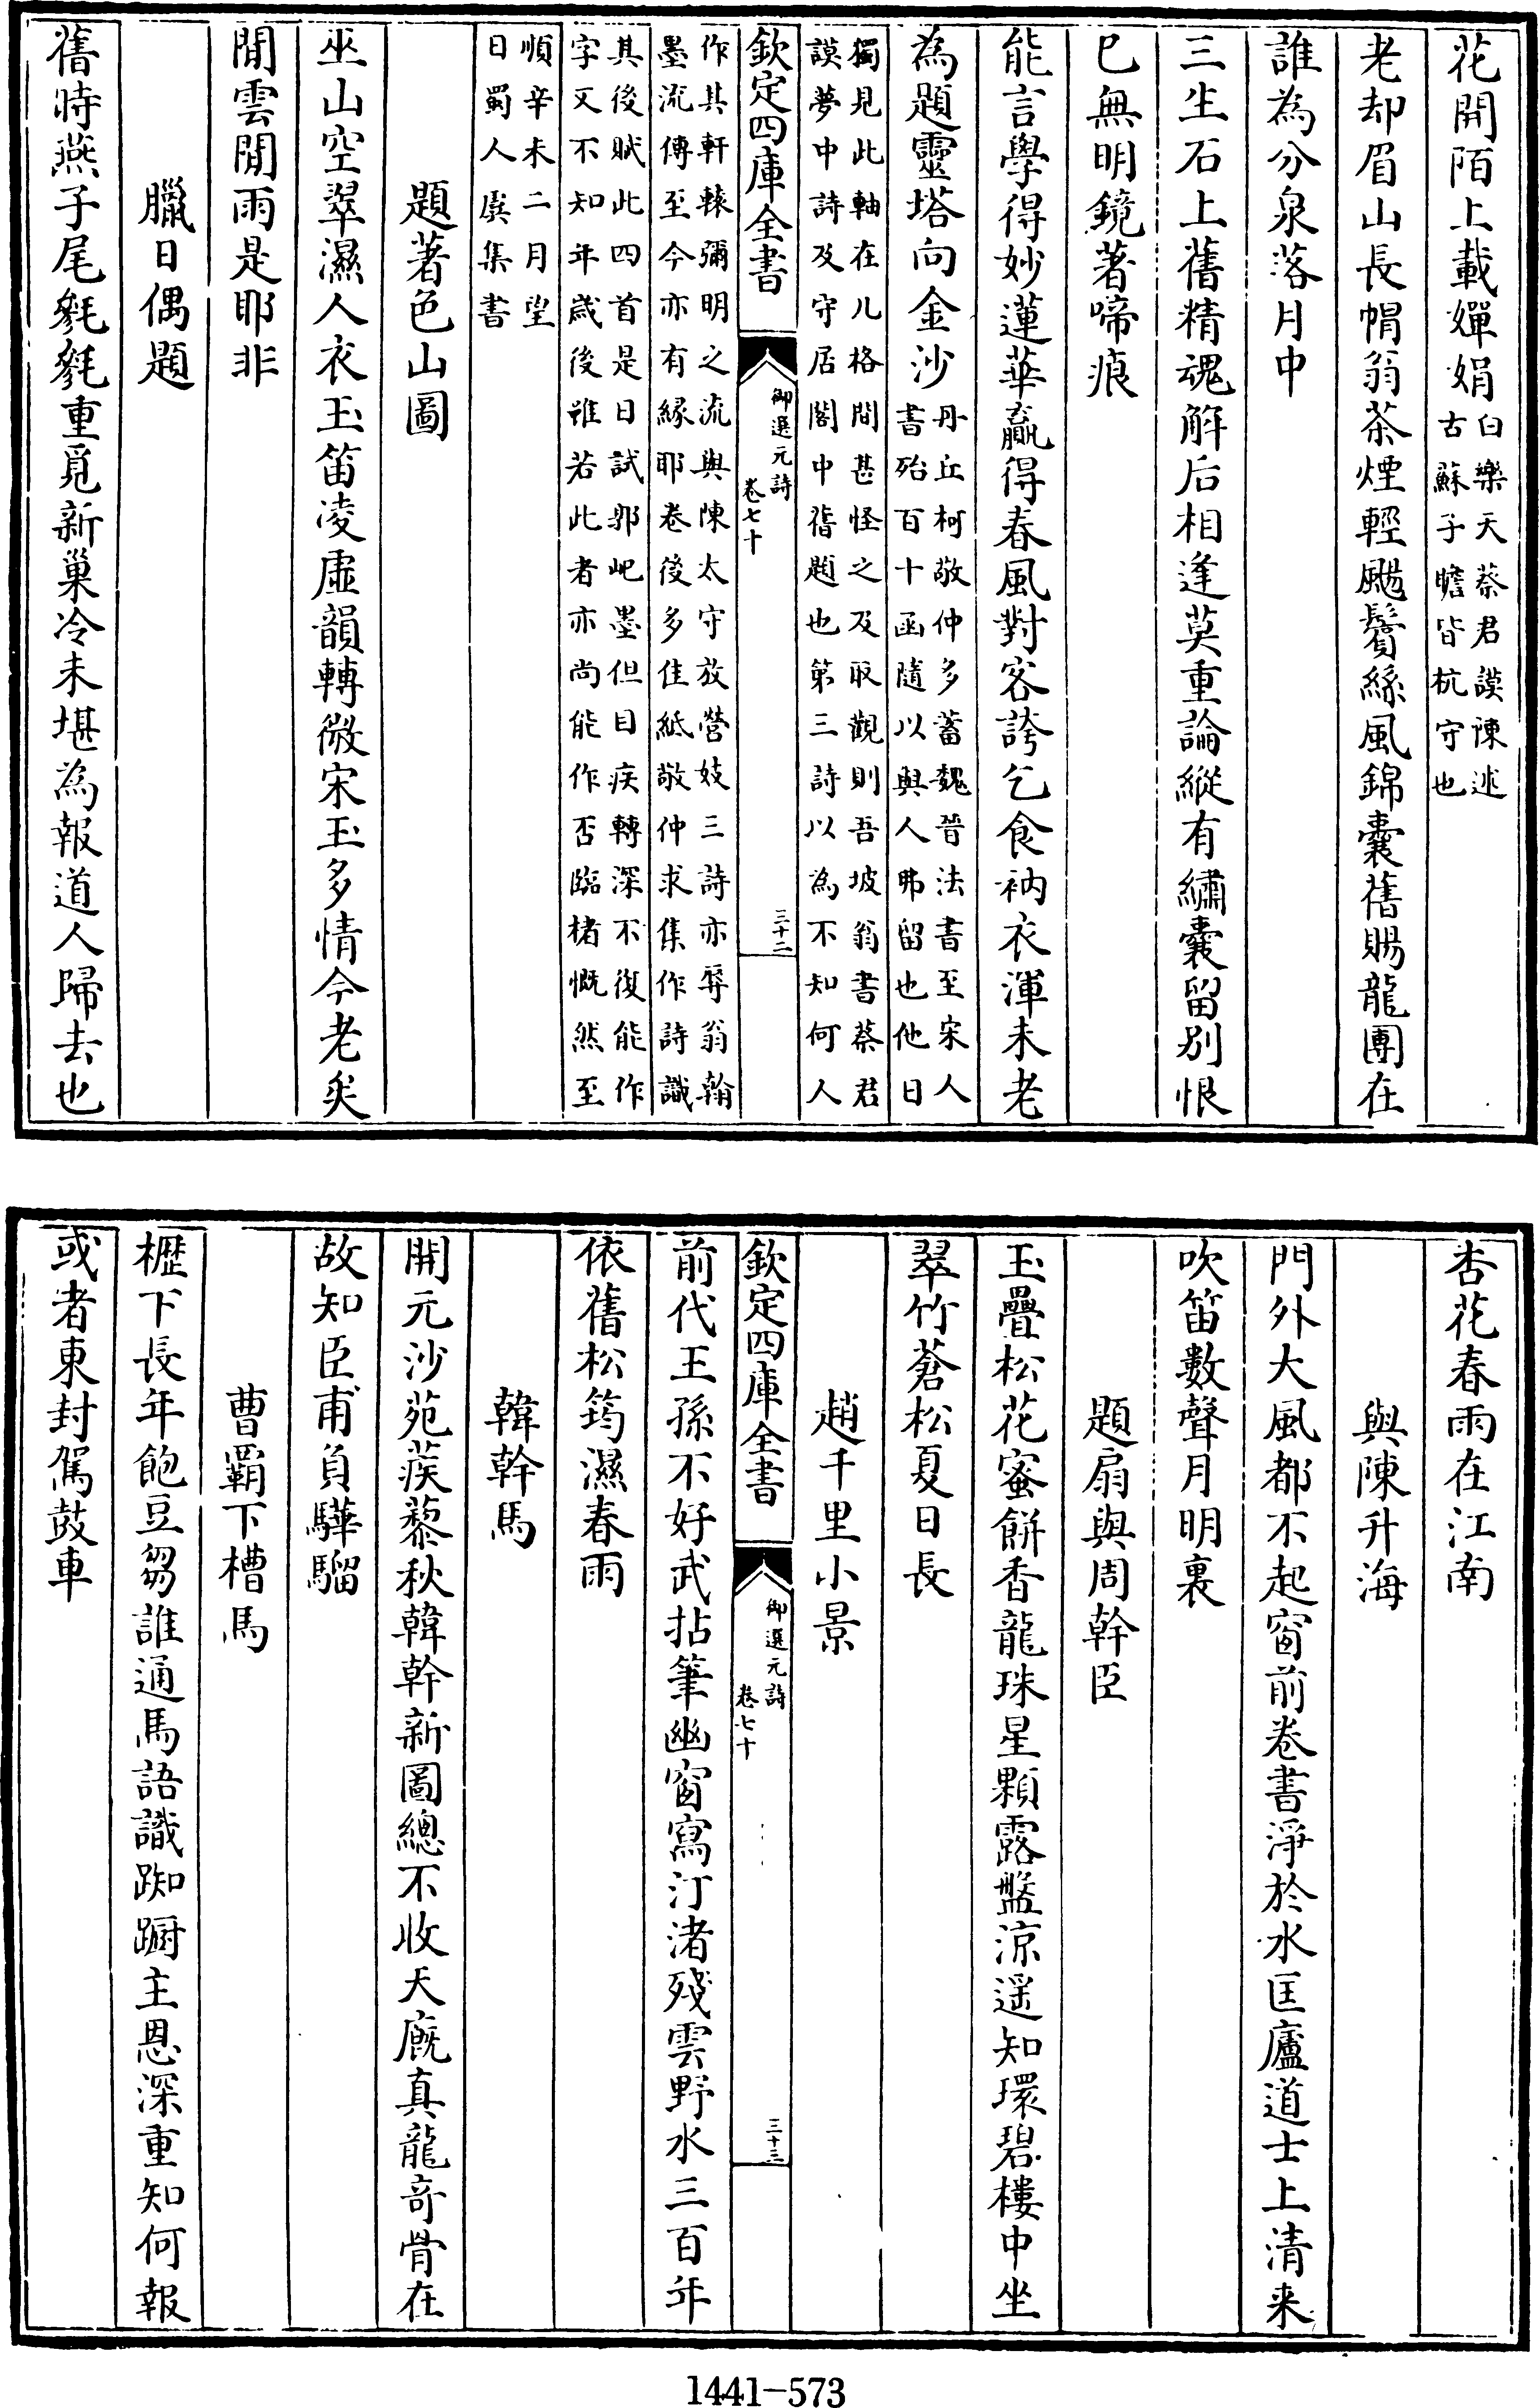 花開陌上載嬋娟白樂天蔡君謨陳述古蘇子瞻皆杭守也
老却眉山長帽翁茶煙輕颺鬢絲風錦囊舊賜龍團在
誰為分泉落月中
三生石上舊精魂解后相逢莫重論縱有繡囊留别恨
已無明鏡著啼痕
能言學得妙蓮華贏得春風對客誇乞食衲衣渾未老
為題靈塔向金沙丹丘柯敬仲多蓄魏晉法書至宋人書殆百十函隨以與人弗留也他日
獨見此軸在几格間甚怪之及取觀則吾坡翁書蔡君謨夢中詩及守居閣中舊題也第三詩以為不知何人
欽定四庫全書
御選元詩
卷七十
三十二
作其軒轅彌明之流與陳太守放營妓三詩亦辱翁翰墨流傳至今亦有緣耶卷後多佳紙敬仲求集作詩識
其後賦此四首是日試郭屺墨但目疾轉深不復能作字又不知年歲後雖若此者亦尚能作否臨楮慨然至
順辛未二月望日蜀人虞集書
題著色山圖
巫山空翠濕人衣玉笛凌虛韻轉微宋玉多情今老矣
閒雲閒雨是耶非
臘日偶題
舊時燕子尾毿毿重覓新巢冷未堪為報道人歸去也
杏花春雨在江南
與陳升海
門外大風都不起窗前卷書淨於水匡廬道士上清来
吹笛數聲月明裏
題扇與周幹臣
玉疊松花蜜餅香龍珠星顆露盤涼遥知環碧樓中坐
翠竹蒼松夏日長
趙千里小景
欽定四庫全書
御選元詩
卷七十
三十三
前代王孫不好武拈筆幽窗寫汀渚殘雲野水三百年
依舊松筠濕春雨
韓幹馬
開元沙苑蒺藜秋韓幹新圖總不收天廐真龍竒骨在
故知臣甫負驊騮
曹霸下槽馬
櫪下長年飽豆芻誰通馬語識踟蹰主恩深重知何報
或者東封駕鼓車
1441-573